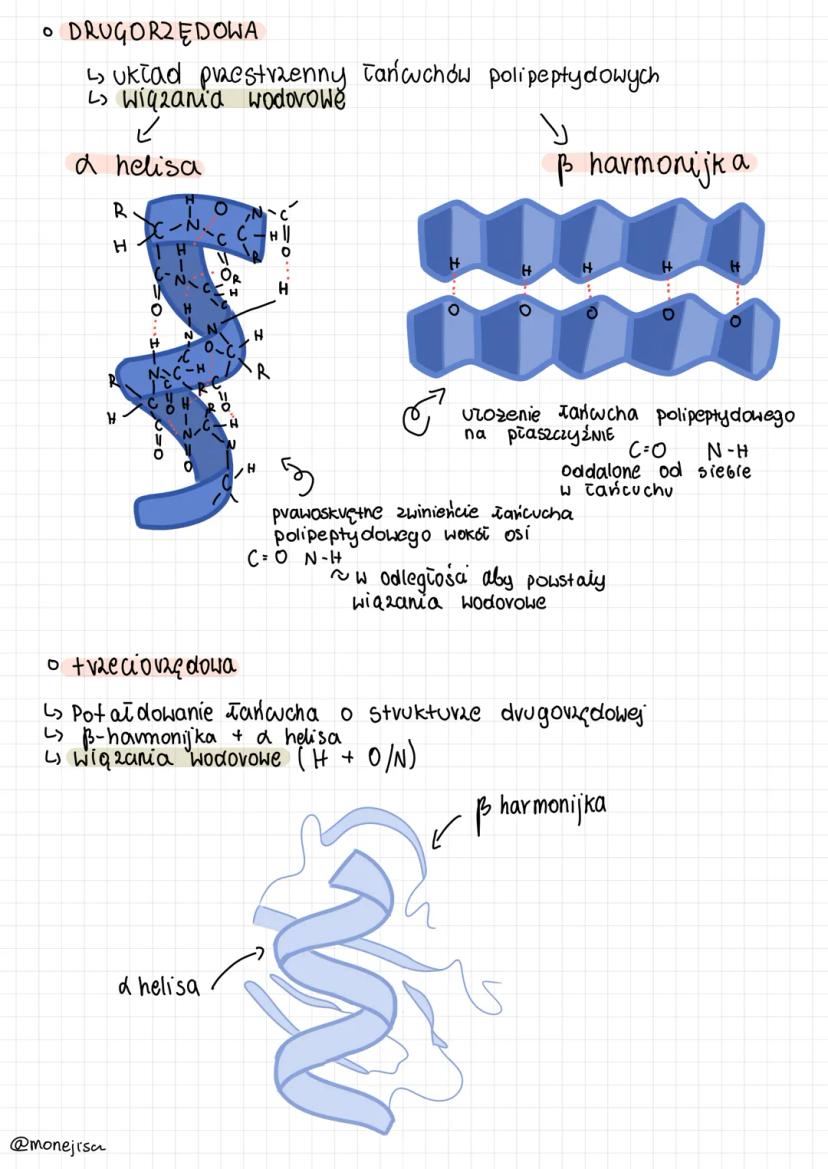 DRUGORZĘDOWA
↳ układ przestrzenny łańcuchów polipeptydowych
↳ wiązania wodorowe
α helisa
β harmonijka
R H N O N C
C N C C H
H H C R O
N C O R H
C H
O H
H N C N H
N C H O C R
R C O H R C O
H C N C H
C O N
O C H
H H H H H
O O O O O
ułożenie łańcucha polipeptydowego
na płaszczyźnie
C=O N-H
oddalone od siebie
w łańcuchu
prawoskrętne zwinięcie łańcucha
polipeptydowego wokół osi
C=O N-H
~ w odległości aby powstały
wiązania wodorowe
trzeciorzędowa
↳ Pofałdowanie łańcucha o strukturze drugorzędowej
↳ β-harmonijka + α helisa
↳ wiązania wodorowe (H + O/N)
β harmonijka
α helisa
@monejrsa